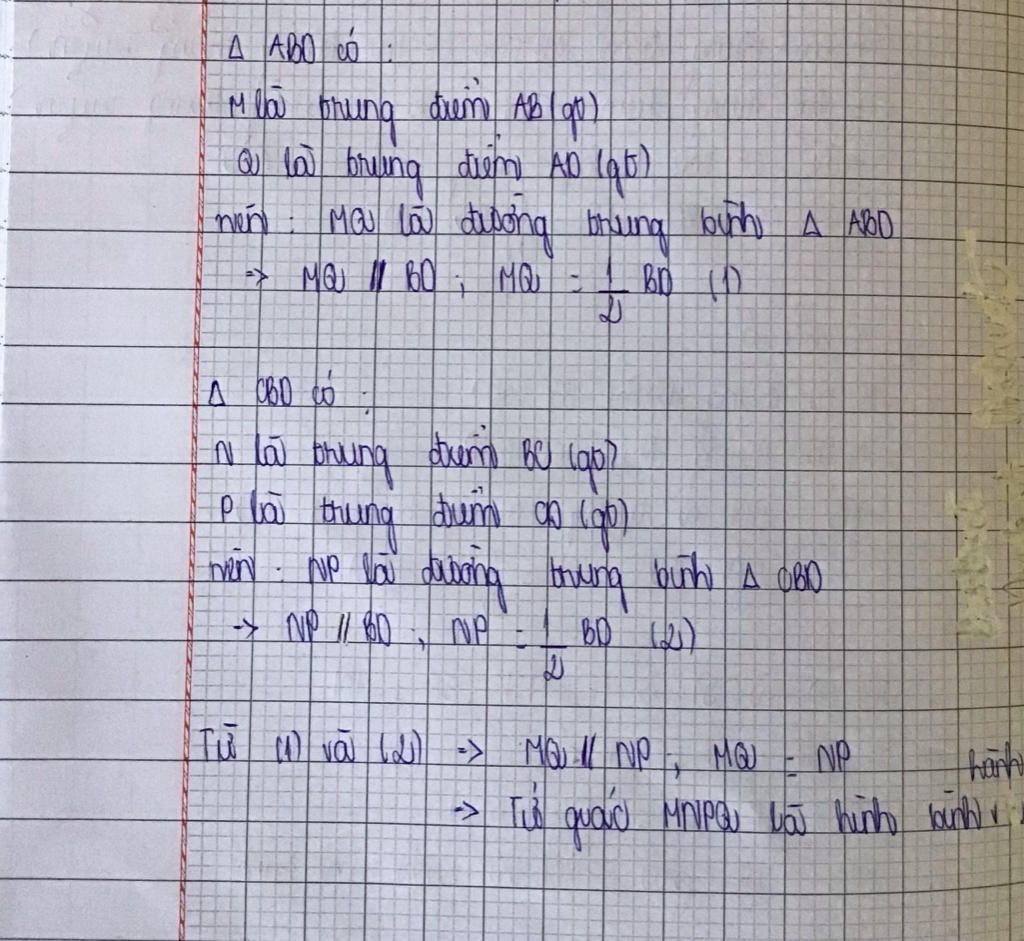 Δ ABD có :
M là trung điểm AB (gt)
Q là trung điểm AD (gt)
nên : MQ là đường trung bình Δ ABD
=> MQ // BD ; MQ = 1/2 BD (1)
Δ CBD có :
N là trung điểm BC (gt)
P là trung điểm CD (gt)
nên : NP là đường trung bình Δ CBD
-> NP // BD ; NP = 1/2 BD (2)
Từ (1) và (2) => MQ // NP ; MQ = NP
=> Tứ giác MNPQ là hình bình hành